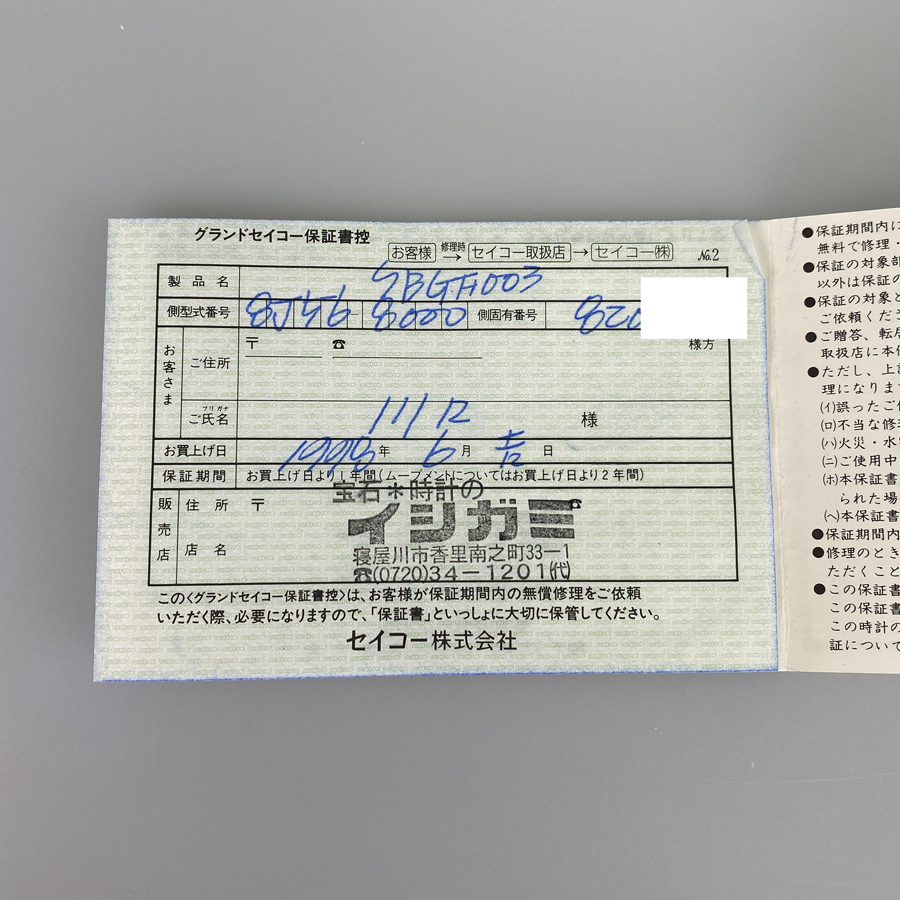 グランドセイコー保証書控
お客様 修理時→ セイコー取扱店 → セイコー㈱ No.2
製品名 SBGH003
側型式番号 8J56-8000 側固有番号 820
お客さま
ご住所 〒 ☎ 様方
フリガナ
ご氏名 11/12 様
お買上げ日 1998年 6月 吉日
保証期間 お買上げ日より1年間(ムーブメントについてはお買上げ日より2年間)
販売店
住所 〒 ☎
店名
宝石*時計の
イシガミ
寝屋川市香里南之町33-1
☎(0720)34-1201(代)
この〈グランドセイコー保証書控〉は、お客様が保証期間内の無償修理をご依頼
いただく際、必要になりますので、「保証書」といっしょに大切に保管してください。
セイコー株式会社
●保証期間内に
無料で修理・
●保証の対象部
以外は保証の
●保証の対象と
ご依頼くださ
●ご贈答、転居
取扱店に本保
●ただし、上記
理になります
(イ)誤ったご使
(ロ)不当な修理
(ハ)火災・水害
(ニ)ご使用中
(ホ)本保証書
られた場
(ヘ)本保証書
●保証期間内
●修理のとき
ただくこと
●この保証書
この保証書
この時計の
証について